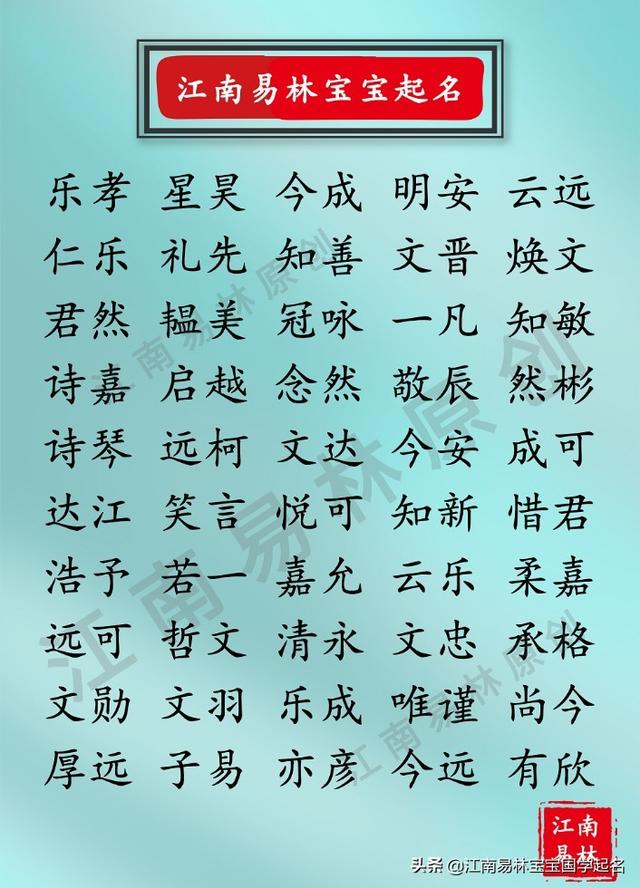 江南易林宝宝起名
乐孝 星昊 今成 明安 云远
仁乐 礼先 知善 文晋 焕文
君然 韫美 冠咏 一凡 知敏
诗嘉 启越 念然 敬辰 然彬
诗琴 远柯 文达 今安 成可
达江 笑言 悦可 知新 惜君
浩予 若一 嘉允 云乐 柔嘉
远可 哲文 清永 文忠 承格
文勋 文羽 乐成 唯谨 尚今
厚远 子易 亦彦 今远 有欣
江南易林原创
江南易林原创
江南易林原创
江南
易林
头条 @江南易林宝宝国学起名